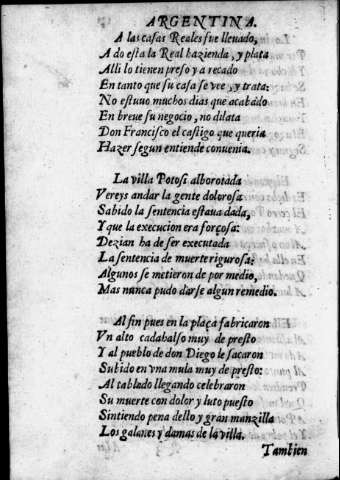 ARGENTINA.
A las casas Reales fue lleuado,
A do esta la Real hazienda, y plata
Alli lo tienen preso y a recado
En tanto que su casa se vee, y trata:
No estuuo muchos dias que acabado
En breue su negocio, no dilata
Don Francisco el castigo que queria
Hazer segun entiende conuenia.
La villa Potosi alborotada
Vereys andar la gente dolorosa
Sabido la sentencia estaua dada,
Y que la execucion era forçosa:
Dezian ha de ser executada
La sentencia de muerte rigurosa:
Algunos se metieron de por medio,
Mas nunca pudo darse algun remedio.
Al fin pues en la plaça fabricaron
Vn alto cadahalso muy de presto
Y al pueblo de don Diego le sacaron
Subido en vna mula muy de presto:
Al tablado llegando celebraron
Su muerte con dolor y luto puesto
Sintiendo pena dello y gran manzilla
Los galanes y damas de la villa.
Tambien